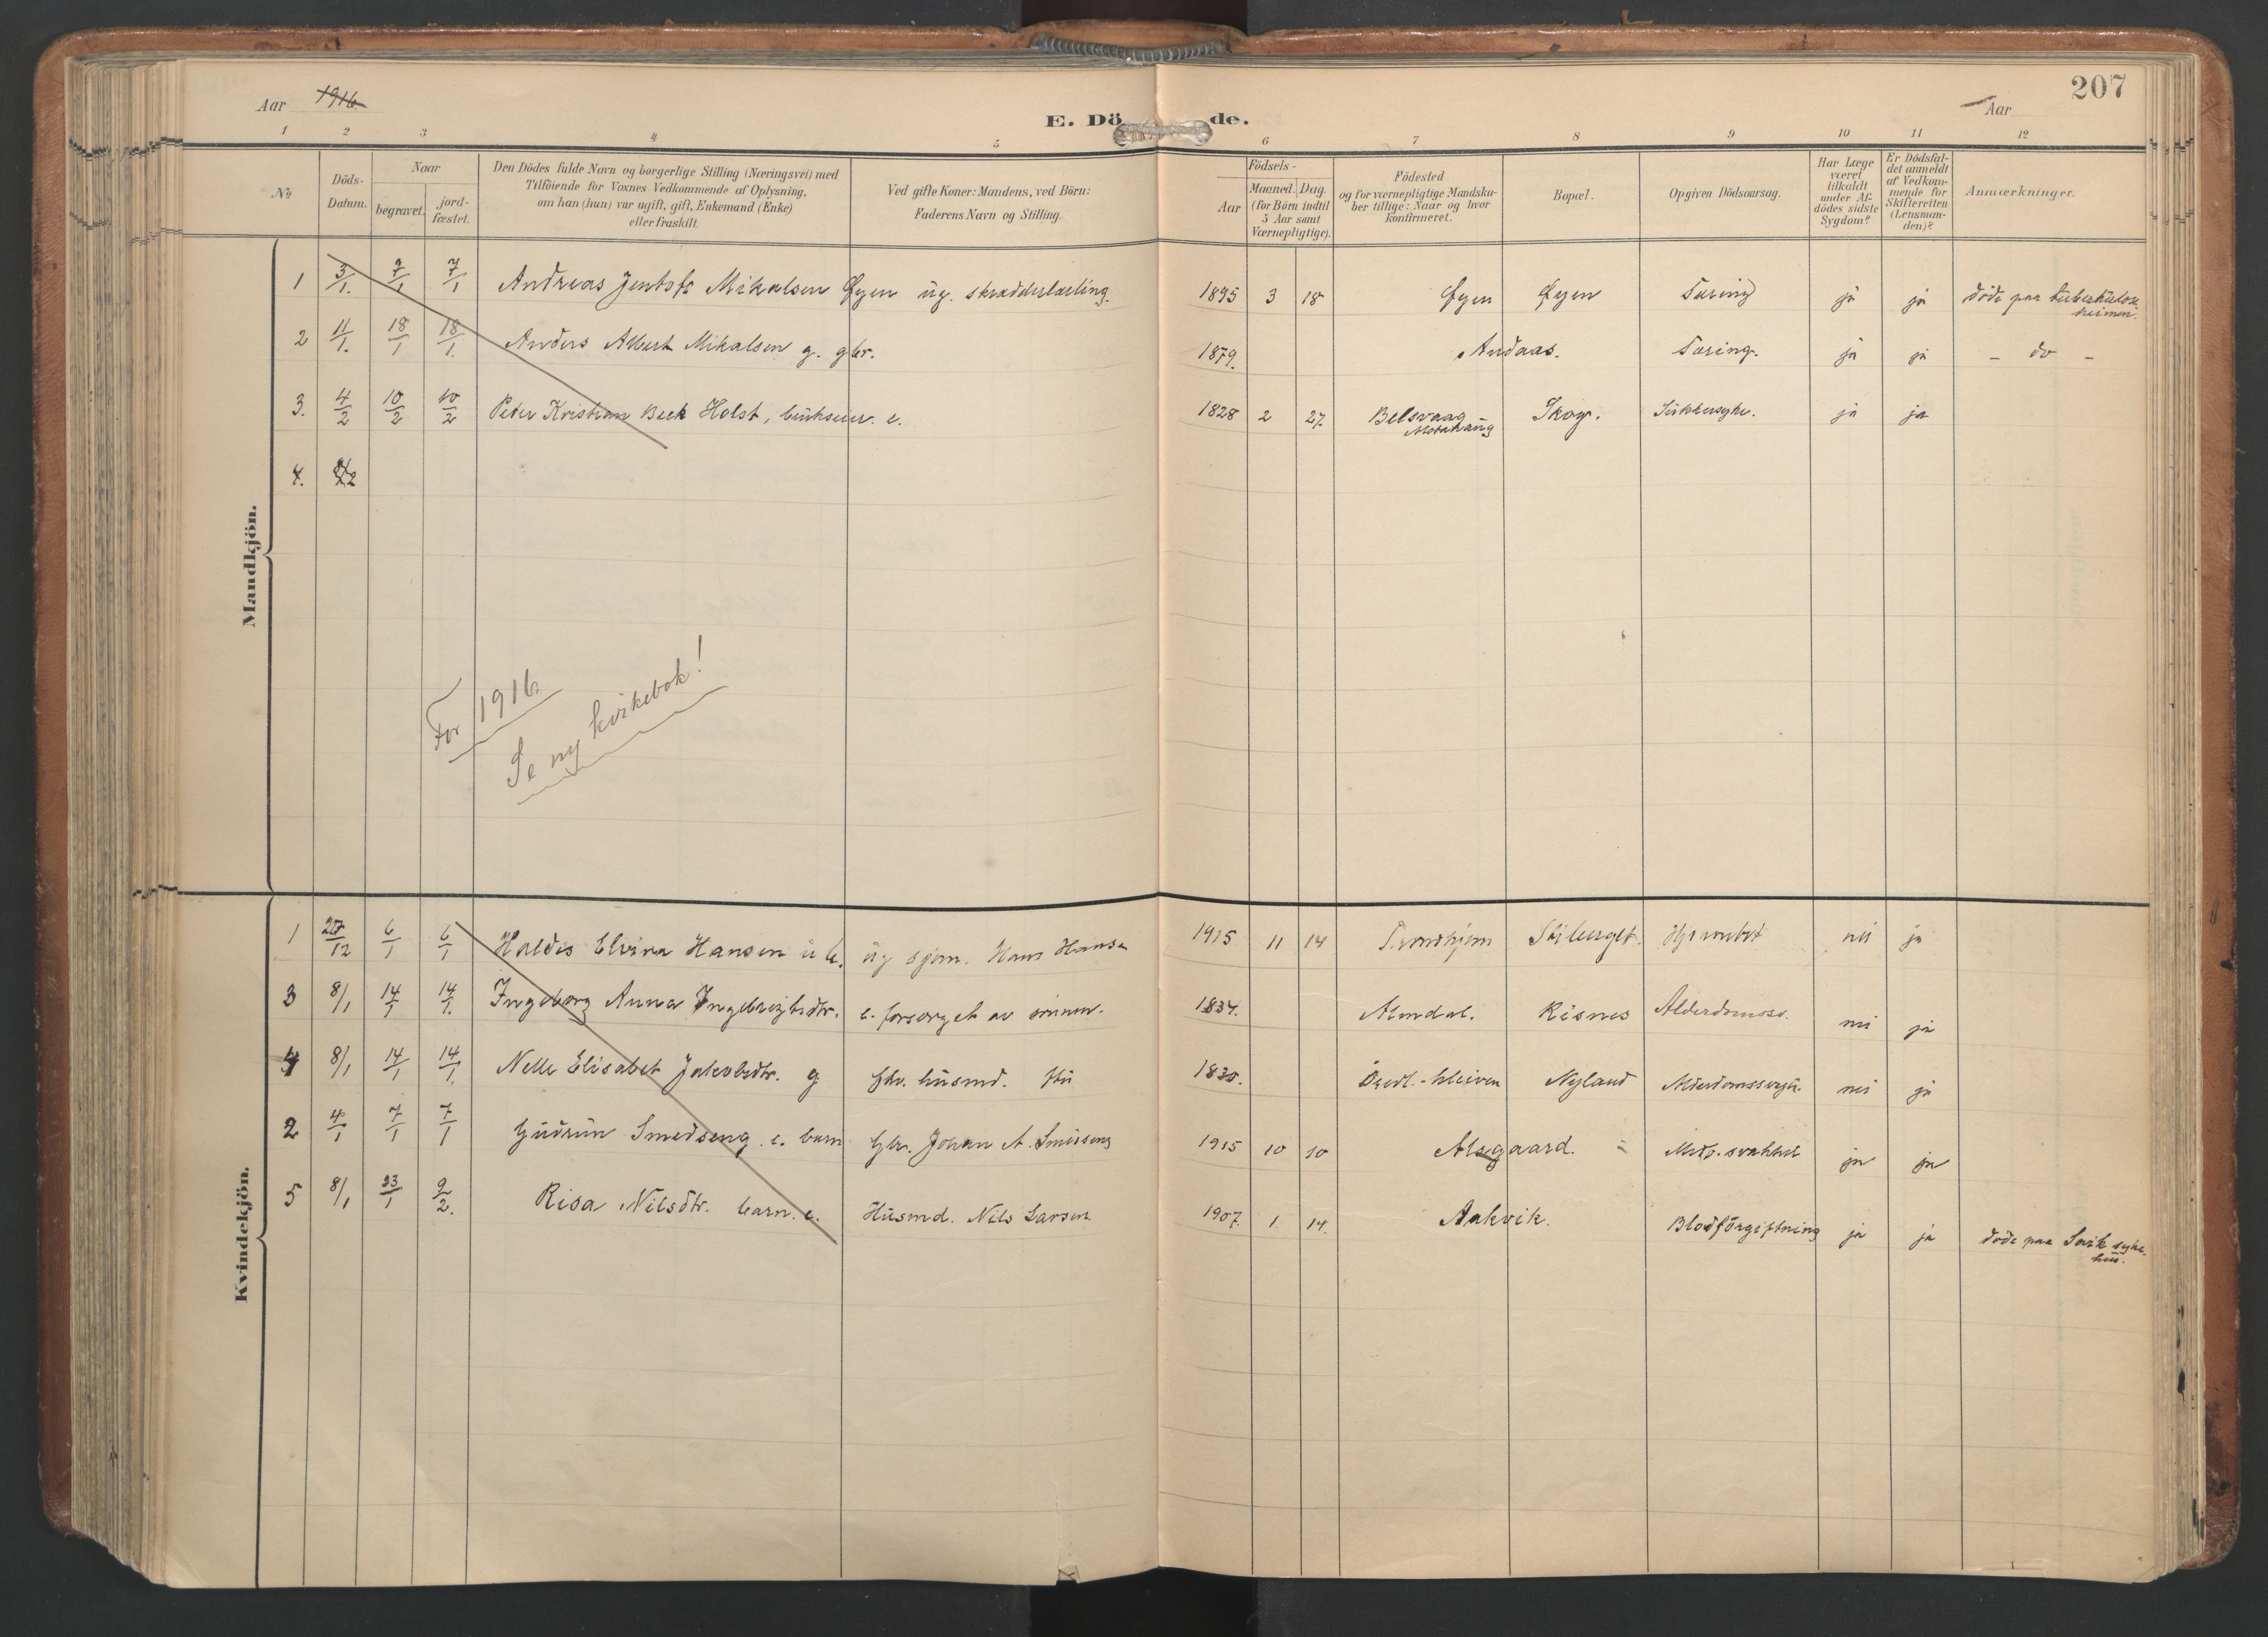 207
Aar 1916.
Aar
E. Dö de.
1 2 3 4 5 6 7 8 9 10 11 12
No
Döds-Datum.
Naar
begravet.
jord-fæstet.
Den Dödes fulde Navn og borgerlige Stilling (Næringsvei) med
Tilföiende for Voxnes Vedkommende af Oplysning.
om han (hun) var ugift, gift, Enkemand (Enke)
eller fraskilt.
Ved gifte Koner: Mandens, ved Börn:
Faderens Navn og Stilling.
Födsels-
Aar
Maaned. Dag.
(for Börn indtil
5 Aar samt
Værnepligtige).
Födested
og for værnepligtige Mandska-
ber tillige: Naar og hvor
konfirmeret.
Bopæl.
Opgiven Dödsaarsag.
Har Læge
været
tilkaldt
under Af-
dödes sidste
Sygdom?
Er Dödsfal-
det anmeldt
af Vedkom-
mende for
Skifteretten
(Lensman-
den)?
Anmærkninger.
Mandkjön.
1 3/1. 7/1 7/1 Andreas Mikalsen Øyen ug. skrædderlærling. 1895 3 18 Øyen Øyen Tæring ja ja døde paa tuberkulose
heimen.
2 11/1. 18/1 18/1. Anders Albert Mikalsen g. gbr. 1879. Andaas. Tæring. ja ja – do –
3. 4/2 10/2 10/2 Peter Kristian Beck Holst, e. 1828 2 27 Belsvaag Skog. ja ja
4.
For 1916.
Se ny kirkebok!
Kvindekjön.
1 27/12 6/1 6/1 Haldis Elvira Hansen ug sjøm. Hans Hansen 1915 11 14 Trondhjem nei ja
3 8/1 14/1 14/1. Ingeborg Anna Ingebrigtsdtr. e. forsorget av 1834. Almdal. Risnes nei ja
4 8/1 14/1 14/1. Nelle Elisabet Jakobsdtr. g husmd. 1830. Nyland nei ja
2 4/1 7/1 7/1 Gudrun Smedseng e. barn Gbr. Johan A. Smedseng 1915 10 10 Alsgaard. ja ja
5 8/1 23/1 9/2. Risa Nilsdtr. barn. e. Husmd. Nils Larsen 1907. 1 14. Aakvik. Blodforgiftning ja ja døde paa syke-
hus.